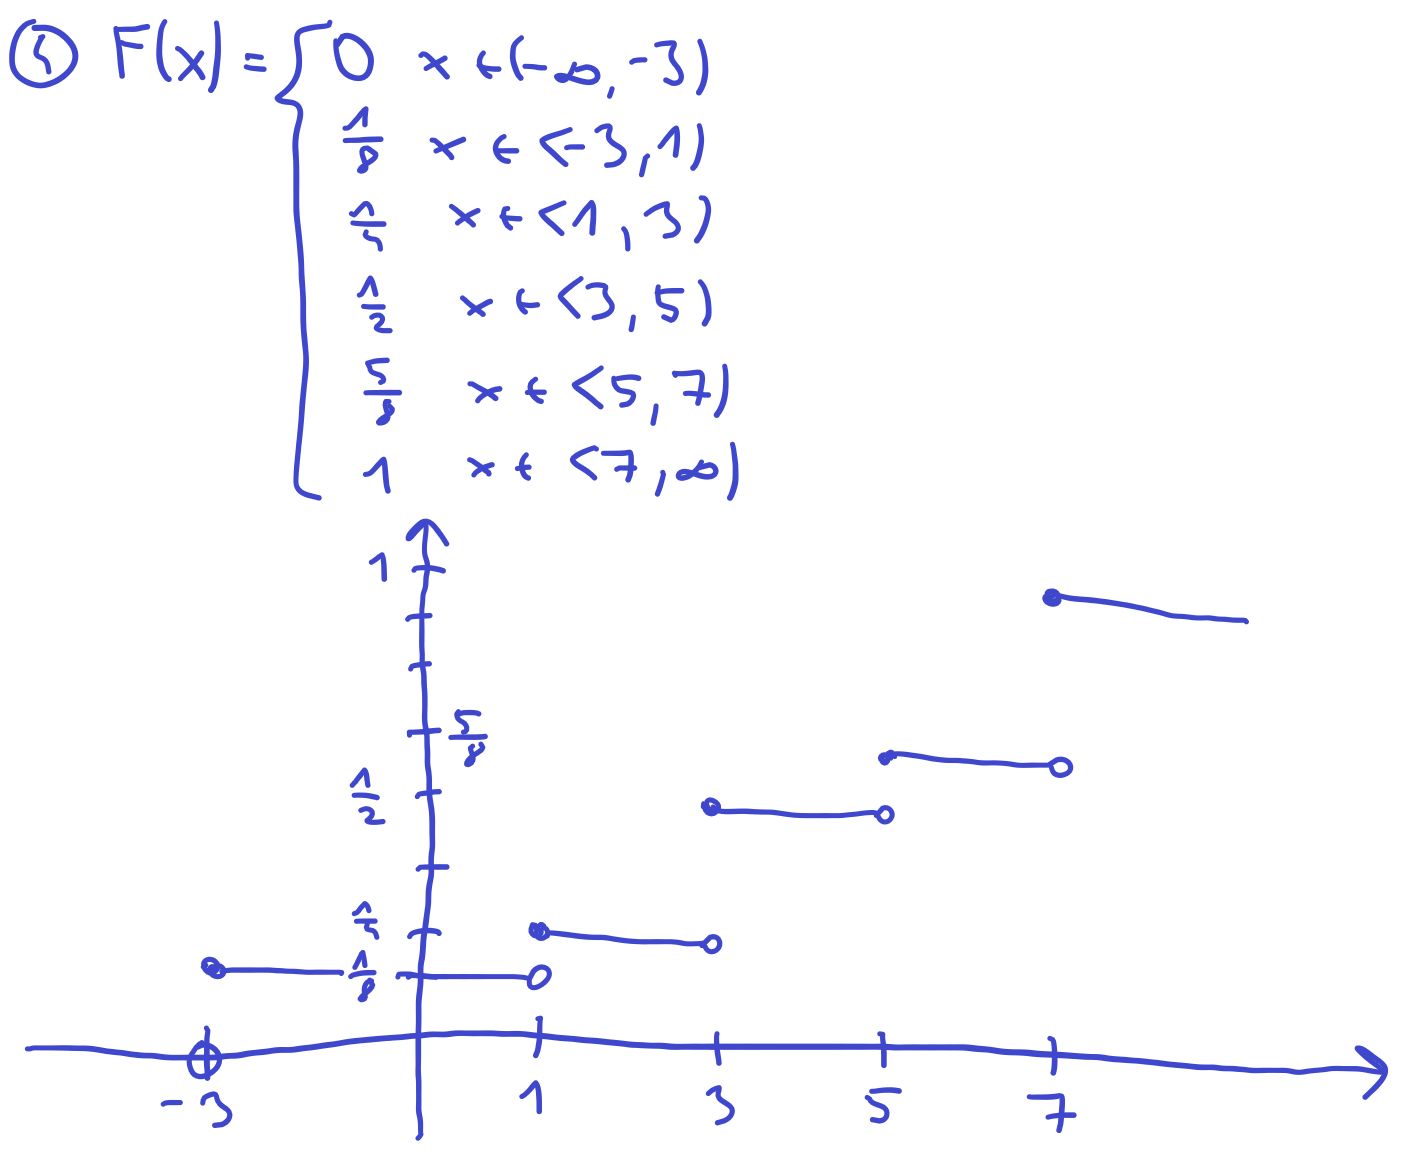 F(x) = { 0 x ∈ (-∞, -3)
1/8 x ∈ <-3, 1)
1/4 x ∈ <1, 3)
1/2 x ∈ <3, 5)
5/8 x ∈ <5, 7)
1 x ∈ <7, ∞)
1
5/8
1/2
1/4
1/8
-3 1 3 5 7